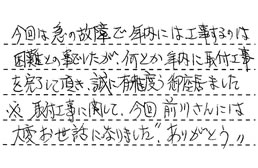 今回は急の故障で年内には工事するのは
困難との事でしたが、何とか年内に取付工事
を完了して頂き、誠に有難度う御座居ました
※ 取付工事に関して、今回前川さんには
大変お世話になりました〃ありがとう〃